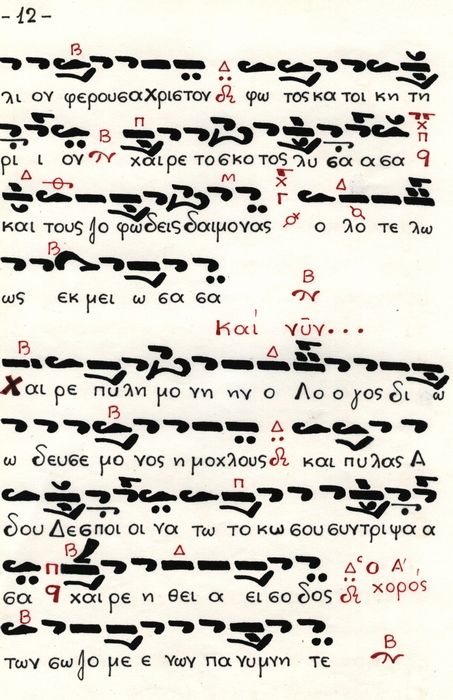 - 12 -
λι ον φερουσα Χριστον φω τος κα τοι κη τη
ρι ι ον χαι ρε το σκο τος λυ σα α σα
και τους ζο φω δεις δαιμονας ο λο τε λω
ως εκ μει ω σα σα
Και νῦν...
Χαι ρε πυ λη μο νη ην ο Λο ο γος δι ω
ω δευσε μο νος η μοχλους και πυλας Α
δου Δεσποι οι να τω το κω σου συντριψα α
σα χαι ρε η θει α ει σο δος ὁ Α΄, χορος
των σω ζο με ε νων πα νυμνη τε